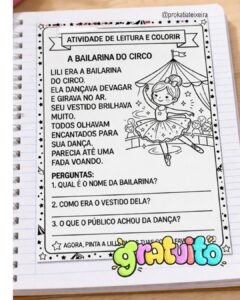 @prokatiateixeira
ATIVIDADE DE LEITURA E COLORIR
A BAILARINA DO CIRCO
LILI ERA A BAILARINA
DO CIRCO.
ELA DANÇAVA DEVAGAR
E GIRAVA NO AR.
SEU VESTIDO BRILHAVA
MUITO.
TODOS OLHAVAM
ENCANTADOS PARA
SUA DANÇA.
PARECIA ATÉ UMA
FADA VOANDO.
PERGUNTAS:
1. QUAL É O NOME DA BAILARINA?
2. COMO ERA O VESTIDO DELA?
3. O QUE O PÚBLICO ACHOU DA DANÇA?
AGORA, PINTA A LILI
gratuito